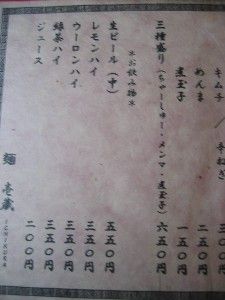 キムチ
めんま
煮玉子 一五〇円
三種盛り(ちゃーしゅー・メンマ・煮玉子) 六五〇円
*お飲み物*
生ビール(中) 五五〇円
レモンハイ 三五〇円
ウーロンハイ 三五〇円
緑茶ハイ 三五〇円
ジュース 二〇〇円
麺 壱蔵
ICHIKURA